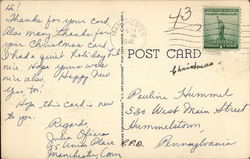 Hi!
Thanks for your card.
Also many thanks for
your Christmas card.
I had a quiet holiday but
nice. Hope yours were
nice also. Happy New
Year, too!
Hope this card is new
to you.
Regards,
Julia
Manchester, Conn
43
1942
POST CARD
Christmas
Pauline Hummel
530 West Main Street
Hummelstown,
Pennsylvania